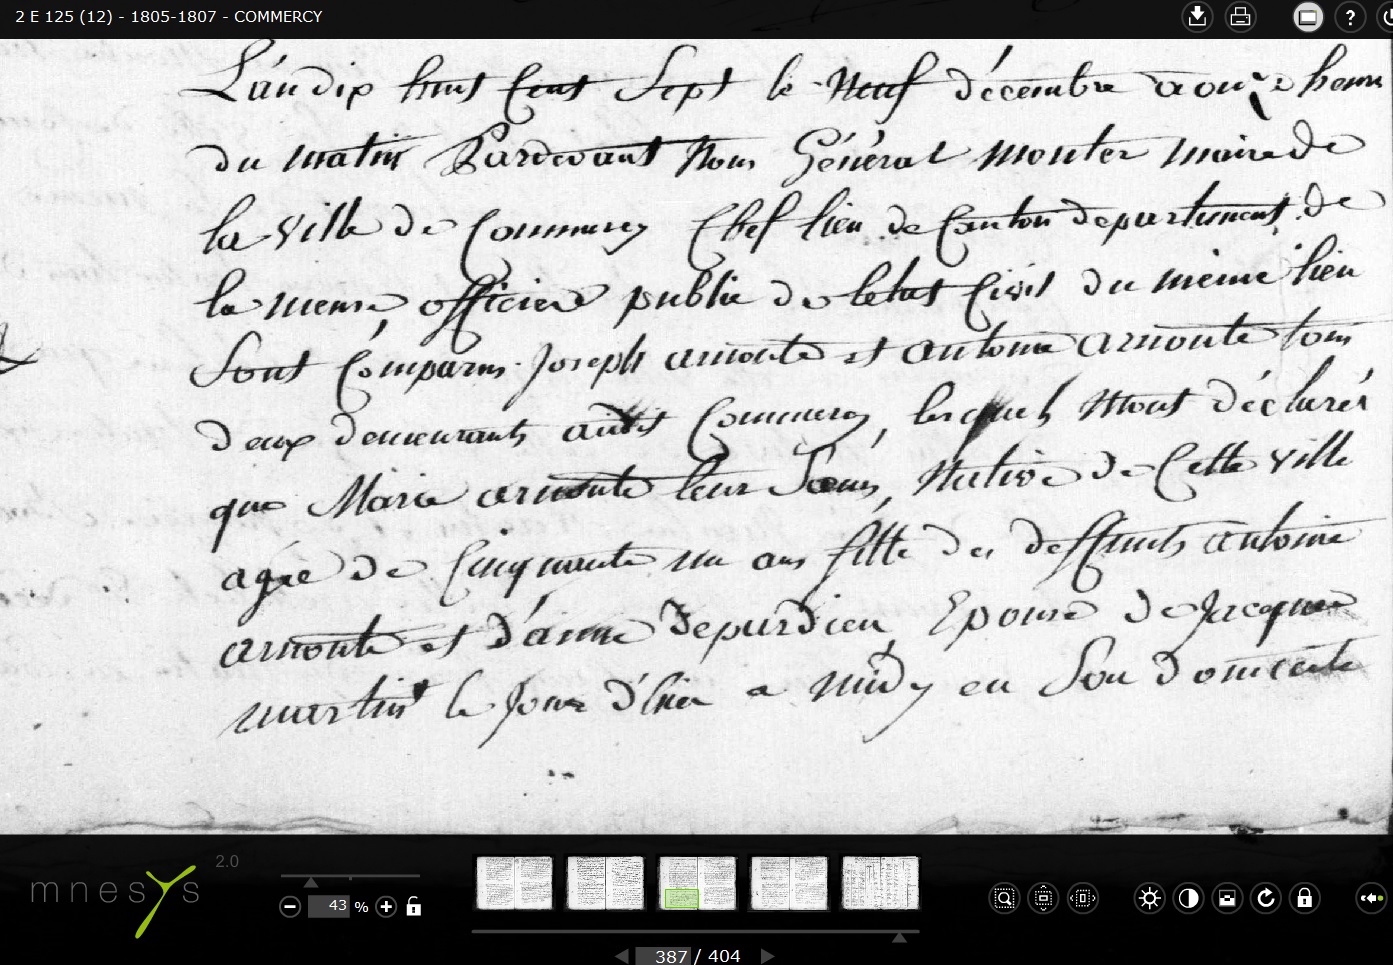 2 E 125 (12) - 1805-1807 - COMMERCY
L'an dix huit Cent Sept le Neuf décembre a onze heures
du matin Pardevant Nous Général monter maire de
la ville de Commercy Chef lieu de Canton departement de
la meuse, officier public de letat Civil du meme lieu
Sont Comparus Joseph arnoute et antoine arnoute tous
deux demeurants audit Commercy, lesquels Mont déclarés
que Marie arnoute leur Soeur, Native de Cette ville
agée de Cinquante un ans fille des deffunts antoine
arnoute et d'anne Depurdieu, Epouse de Jacques
martin le Jour d'hier a midy en Son domicile
mnesys 2.0
43 %
387 / 404